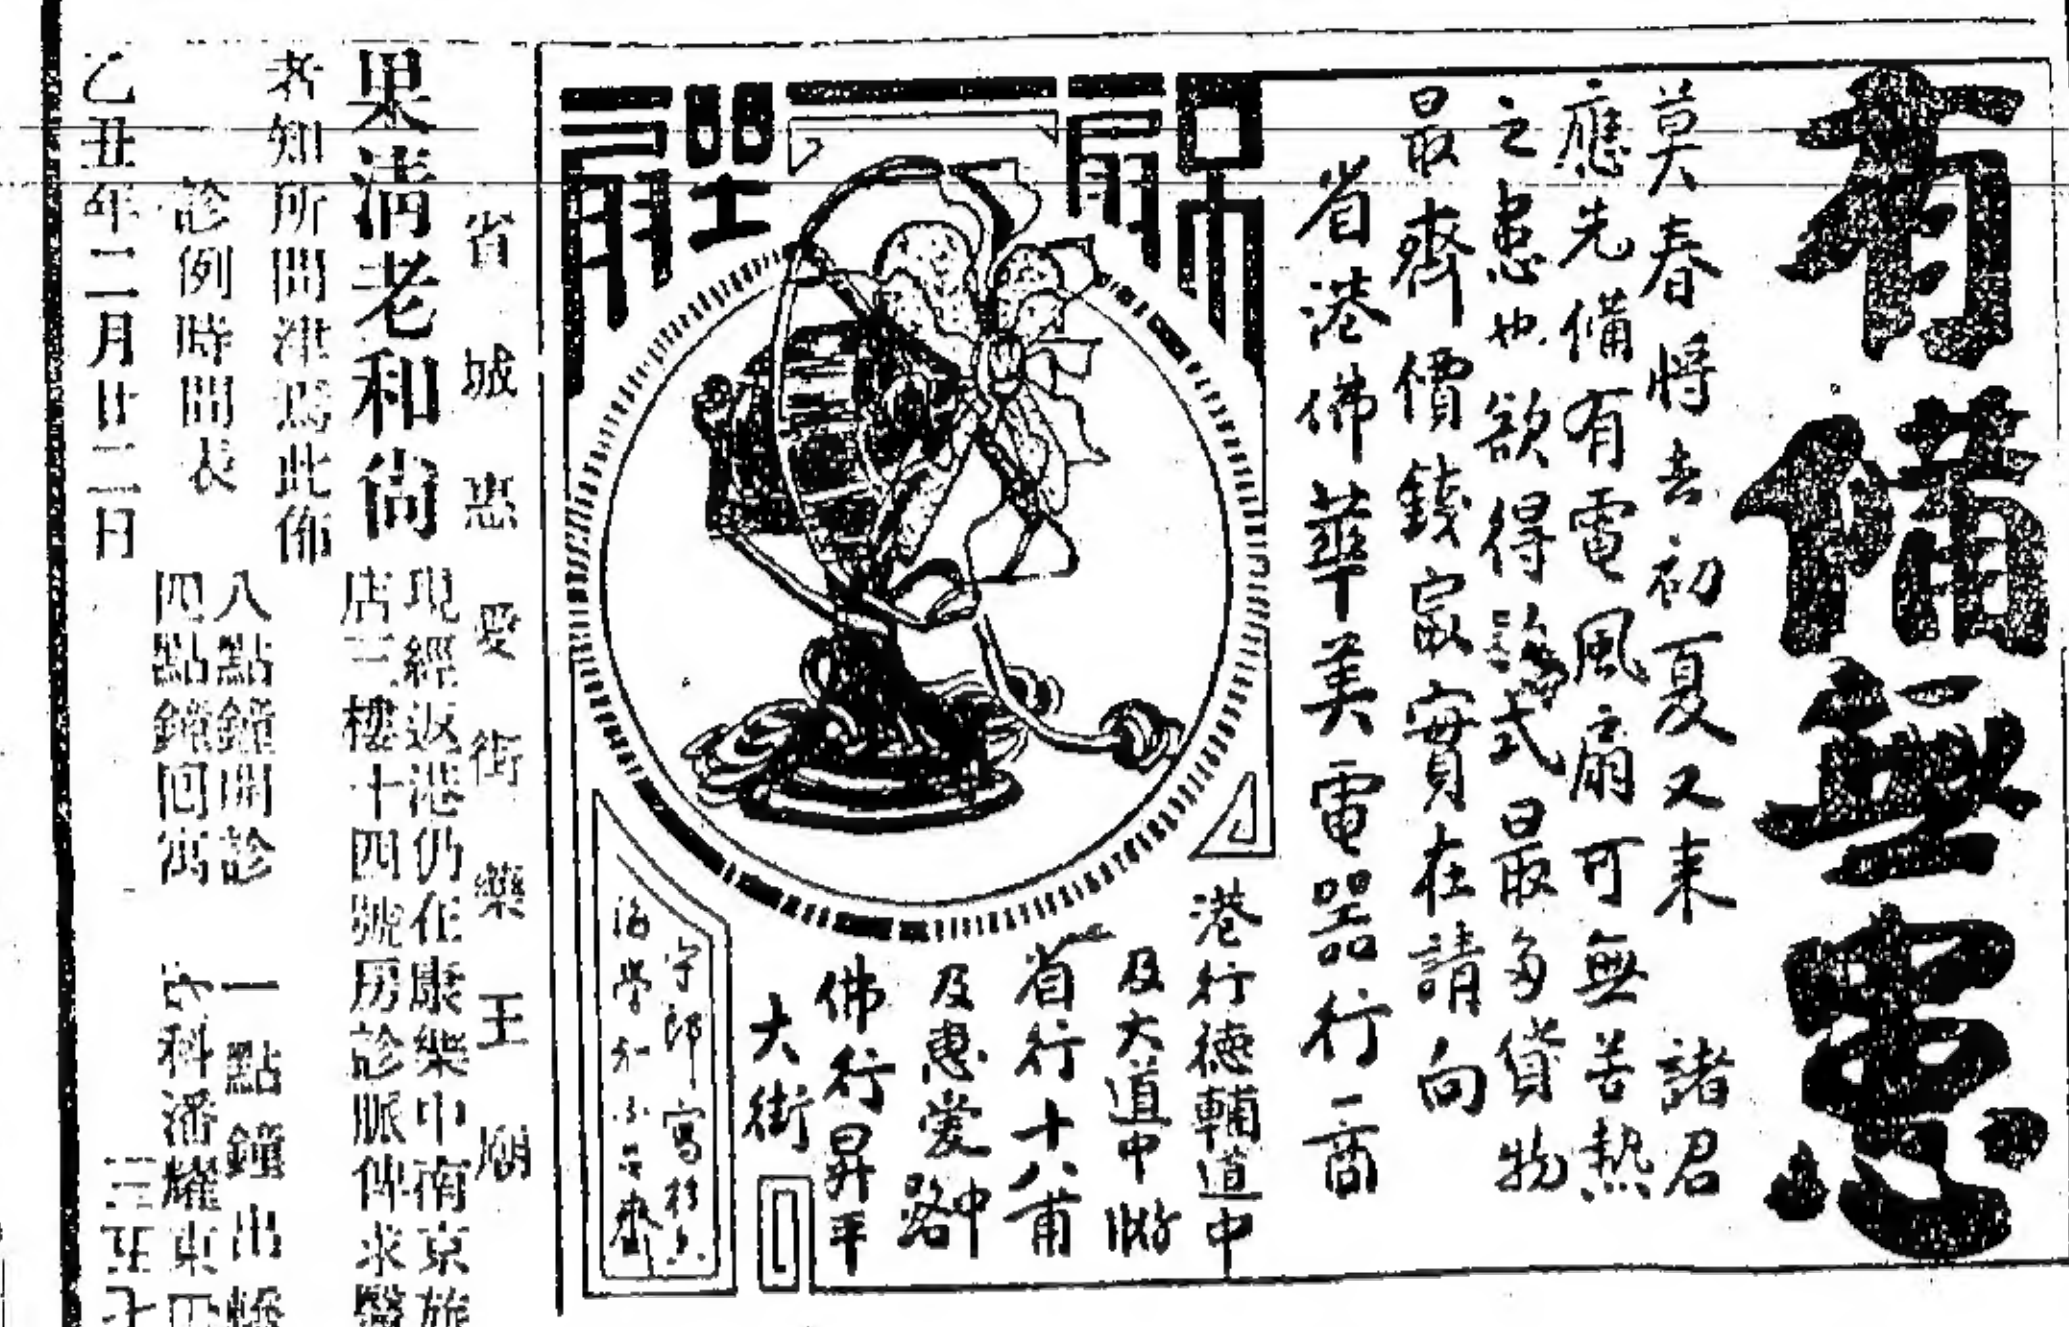 有備無患
莫春將去初夏又來 諸君
應先備有電風扇可無苦熱
之患也欲得 式最多貨物
最齊價錢最實在請向
省港佛華美電器行一商
港行德輔道中
及大道中
省行十八甫
及惠愛中路
佛行昇平
大街
省城惠愛街藥王廟
果清老和尚
現經返港仍在康樂中南京旅
店三樓十四號房診脈俾求醫
者知所問津焉此佈
診例時間表
八點鐘開診 一點鐘出轎
四點鐘回寓 內科潘耀東
乙丑年二月廿二日